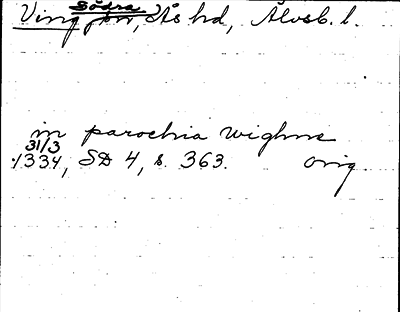 Södra
Ving sn, Ås hd, Älvsb. l.
in parochia wighm
31/3
1334, SD 4, s. 363. Orig.